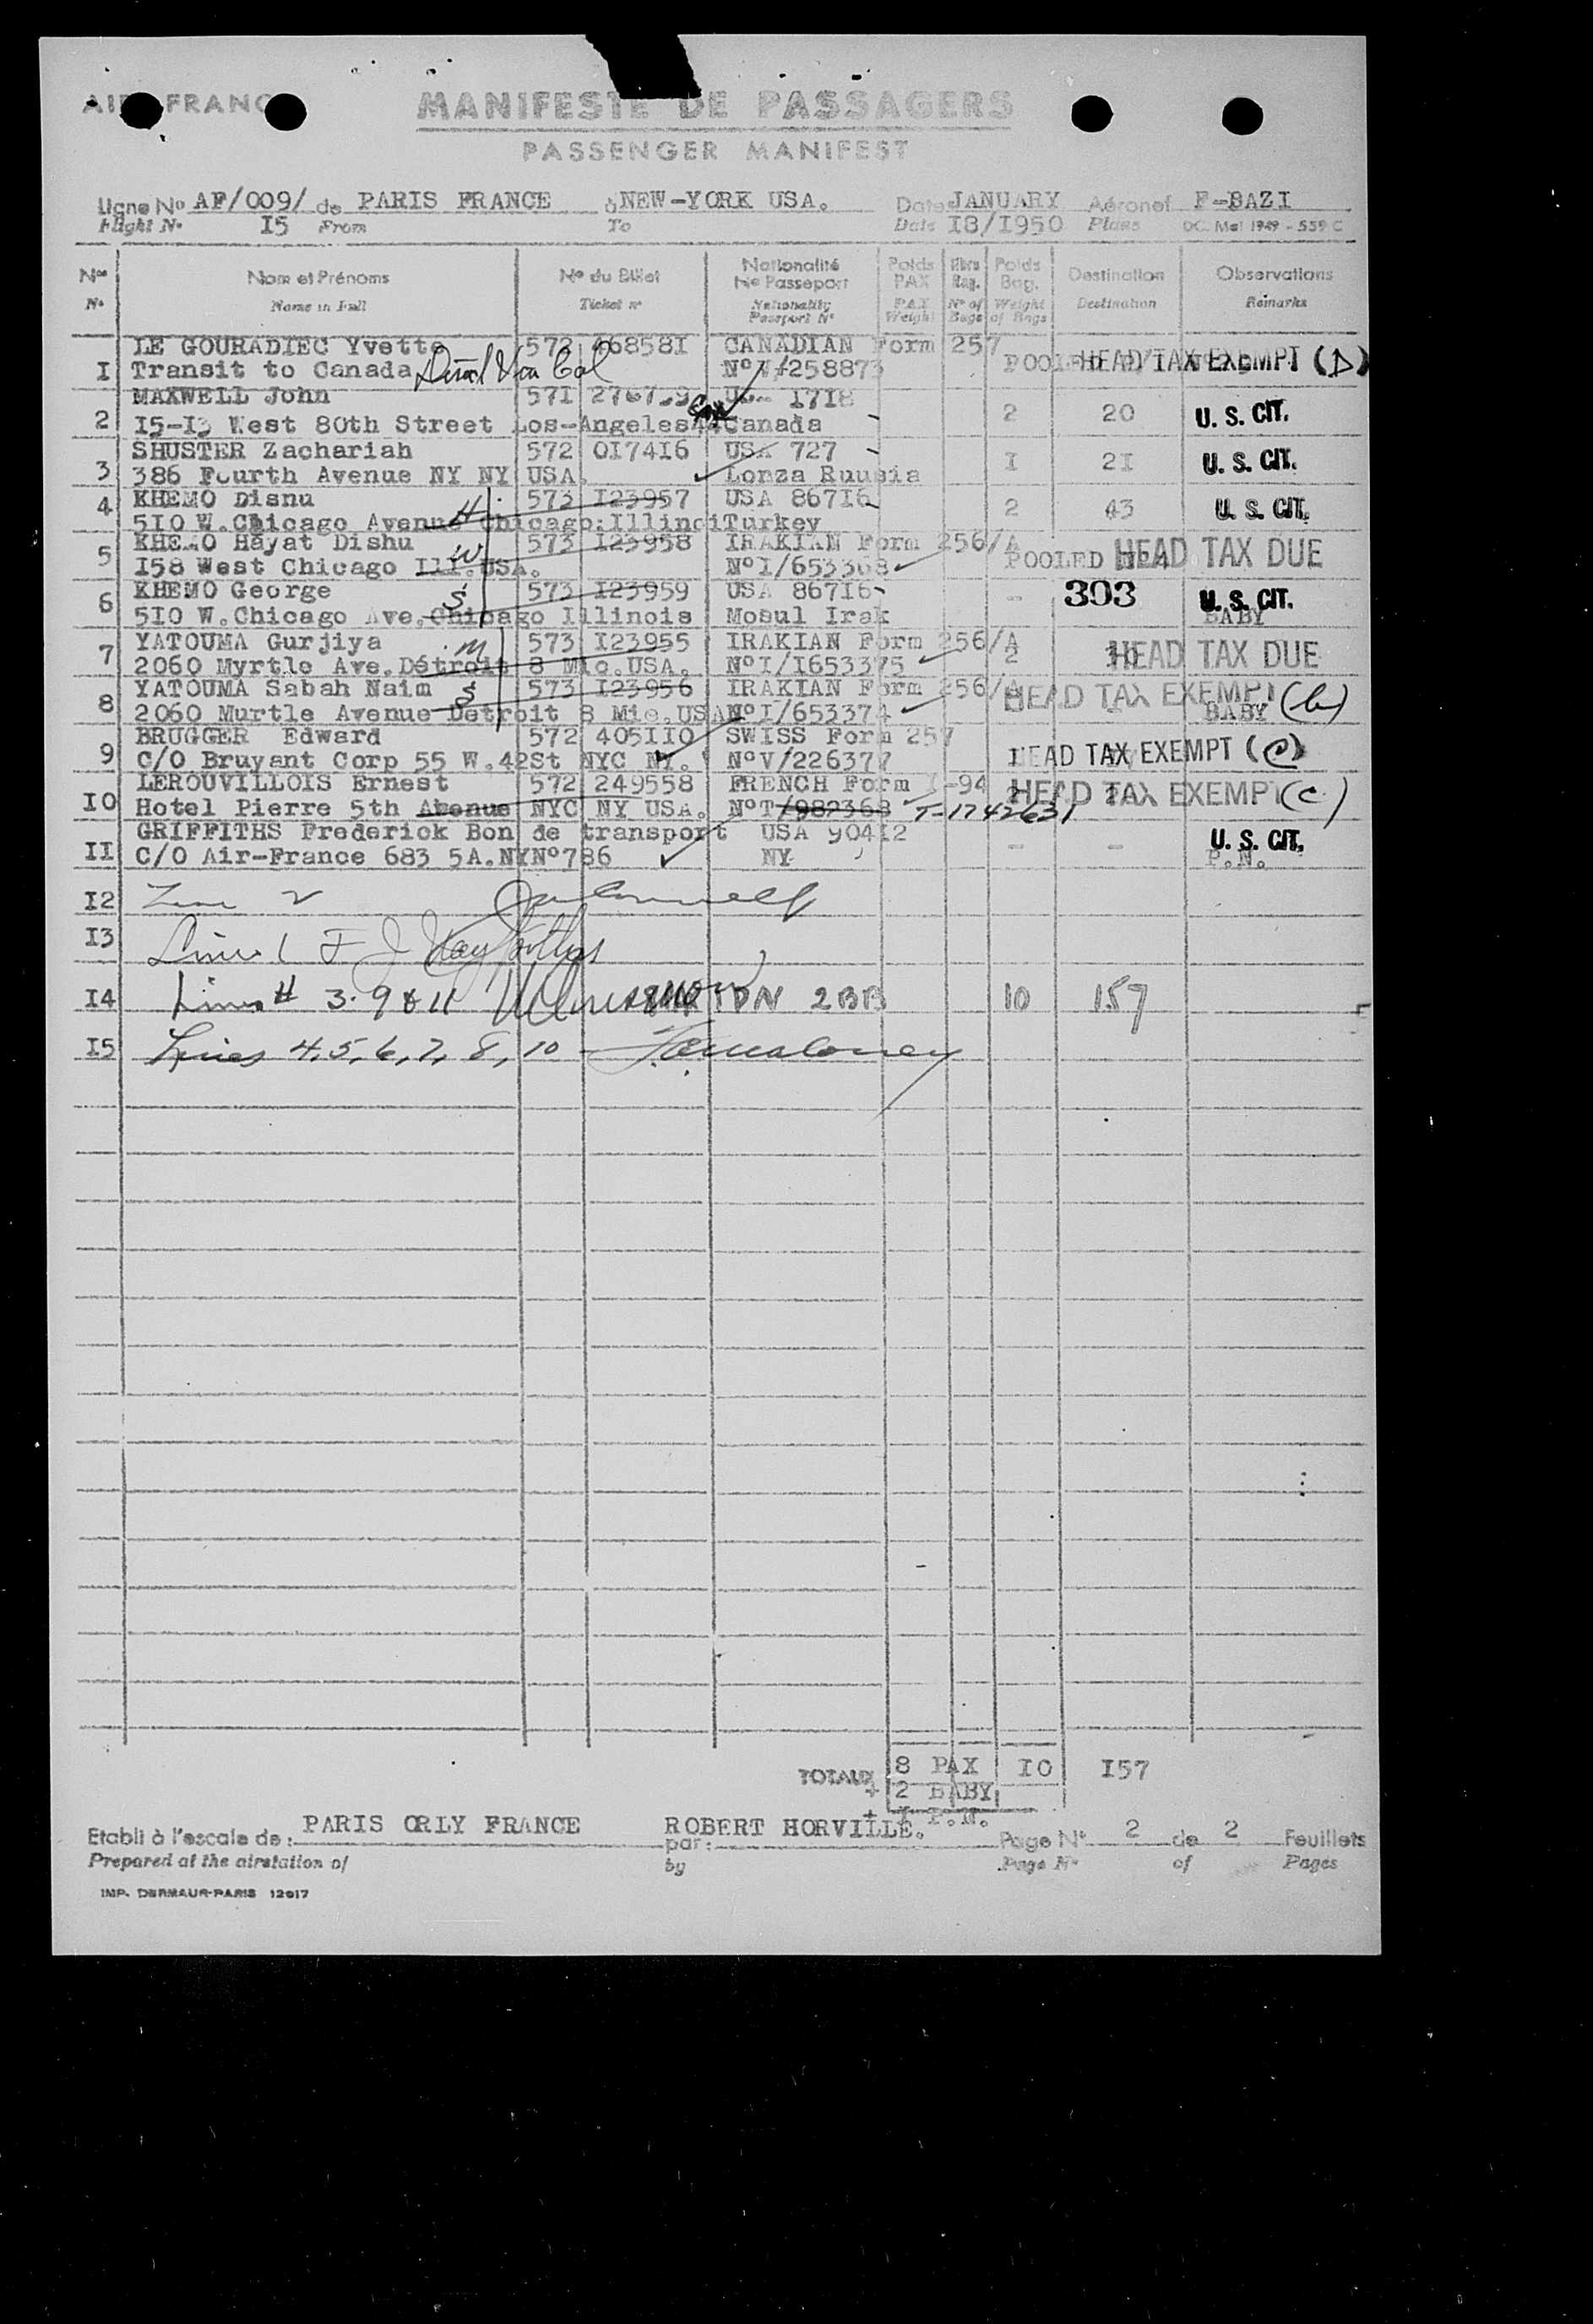 AIR FRANC
MANIFESTE DE PASSAGERS
PASSENGER MANIFEST
Ligne No AF/009/ de PARIS FRANCE à NEW-YORK USA. Dates JANUARY Aéronef F-BAZI
Flight No I5 From To Date I8/I950 Plane DC. Mal 1949 - 559 C
Nos Nom et Prénoms No du Billet Nationalité Poids Nbre Poids Destination Observations
No Passeport PAX Bag. Bag.
No Name in Full Ticket no Nationality PAX No of Weight Destination Remarks
Passport No Weight Bags of Bags
LE GOURADIEC Yvette 572 468581 CANADIAN Form 257
I Transit to Canada No V/258873 HEAD TAX EXEMPT (D)
MAXWELL John 571 1718
2 I5-I3 West 80th Street Los-Angeles 44 Canada 2 20 U. S. CIT.
SHUSTER Zachariah 572 0I74I6 USA 727
3 386 Fourth Avenue NY NY USA. Lomza Ruusia I 2I U. S. CIT.
4 KHEMO Disnu H 573 I23957 USA 867I6 2 43 U. S. CIT.
5I0 W.Chicago Avenue Chicago:IllinoiTurkey
KHEMO Hayat Dishu W 573 I23958 IRAKIAN Form 256/A
5 I58 West Chicago Ill.USA. No I/653368 POOLED HEAD TAX DUE
6 KHEMO George S 573 I23959 USA 867I6 - 303 U. S. CIT.
5I0 W.Chicago Ave.Chicago Illinois Mosul Irak BABY
YATOUMA Gurjiya M 573 I23955 IRAKIAN Form 256/A
7 2060 Myrtle Ave.Détroit 8 Mic.USA. No I/I653375 2 HEAD TAX DUE
YATOUMA Sabah Naim S 573 I23956 IRAKIAN Form 256/A HEAD TAX EXEMPT (b)
8 2060 Murtle Avenue Detroit 8 Mic.USA No I/653374 BABY
BRUGGER Edward 572 405II0 SWISS Form 257
9 C/O Bruyant Corp 55 W.42St NYC NY. No V/226377 HEAD TAX EXEMPT (C)
LEROUVILLOIS Ernest 572 249558 FRENCH Form I-94
I0 Hotel Pierre 5th Avenue NYC NY USA. No T/982368 T-1742631 HEAD TAX EXEMPT (C)
GRIFFITHS Frederick Bon de transport USA 904I2 U. S. CIT.
II C/O Air-France 683 5A.NY No 786 NY - - P.N.
I2 Line 2
I3 Line 1 F J
I4 Lines # 3. 9 & 11 2 BB 10 157
I5 Lines 4, 5, 6, 7, 8, 10 - Maloney
TOTAUX 8 PAX I0 I57
+ 2 BABY
+ I P.N.
Etabli à l'escale de: PARIS ORLY FRANCE par: ROBERT HORVILLE. Page No 2 de 2 Feuillets
Prepared at the airstation of by Page No of Pages
IMP. DERMAUR-PARIS 12017